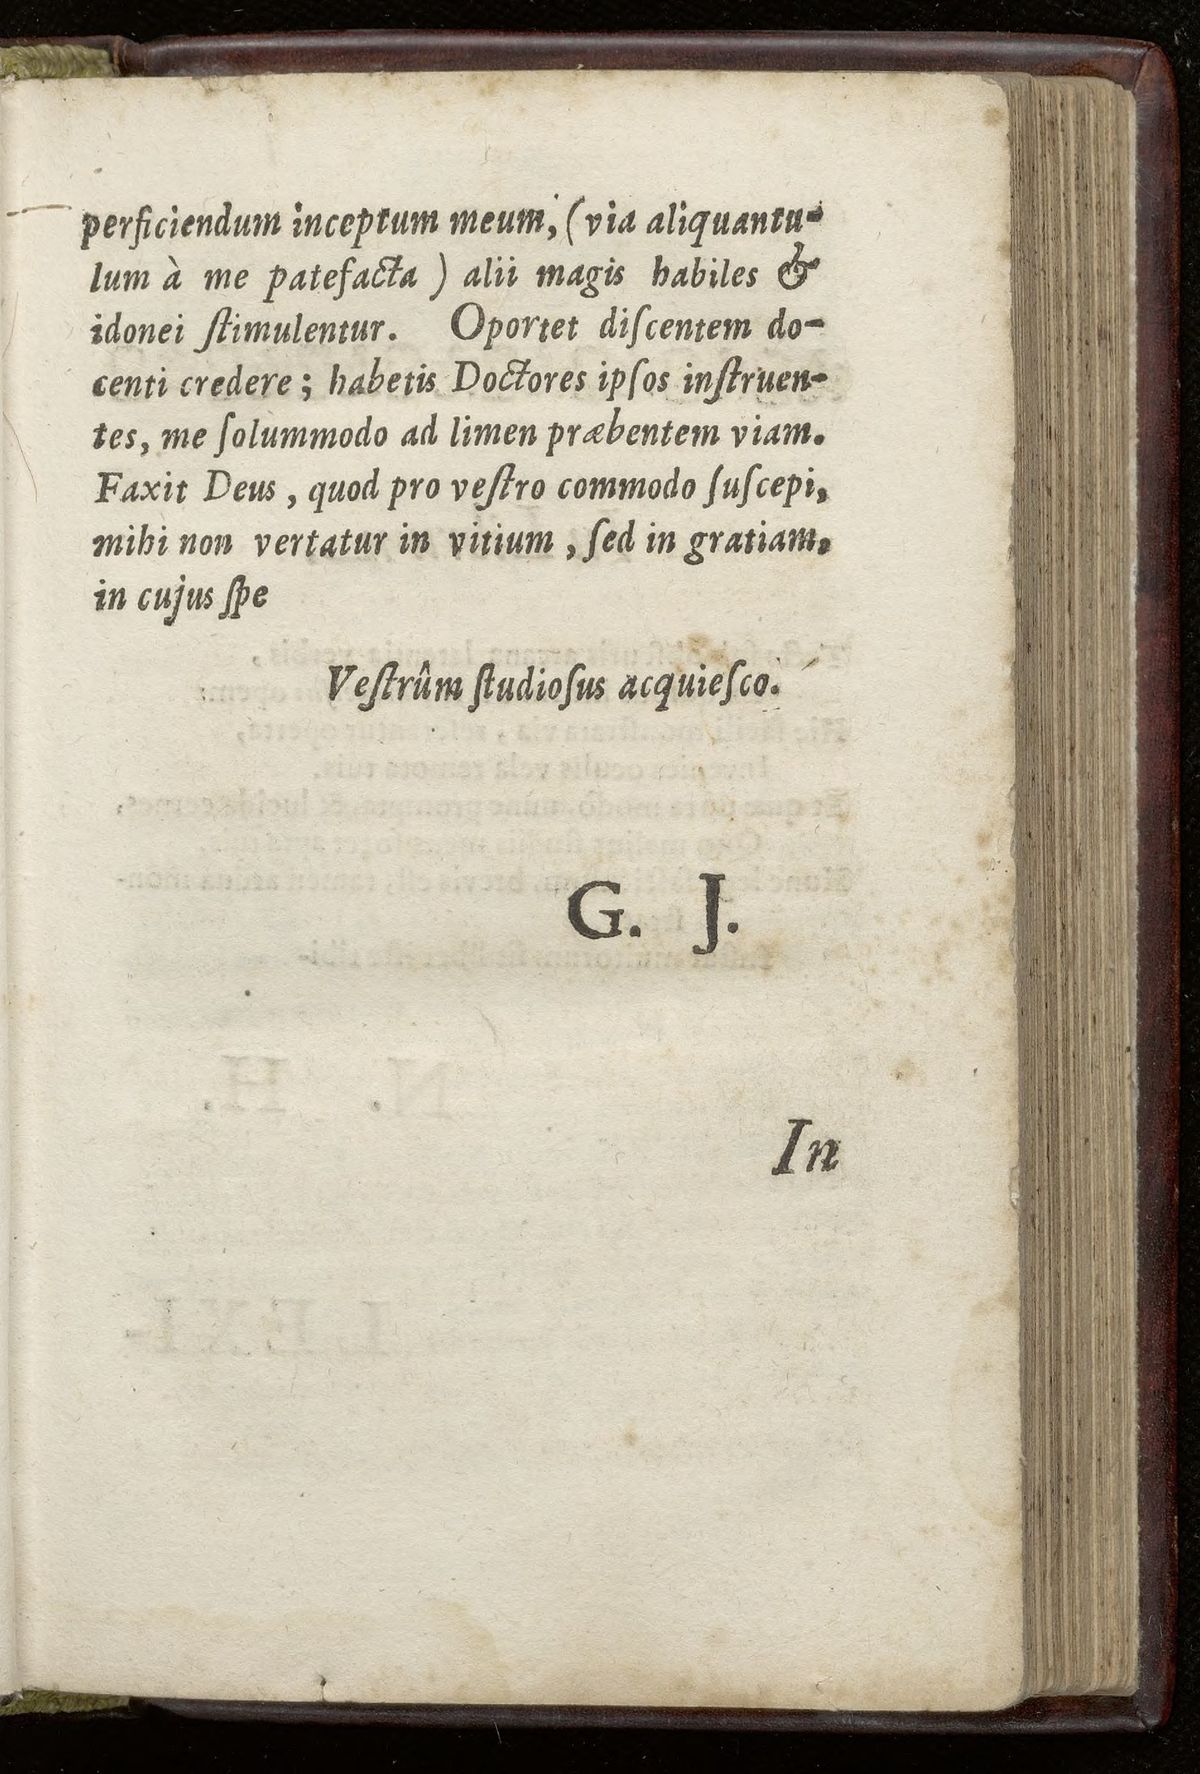 perficiendum inceptum meum, (via aliquantu-
lum à me patefacta) alii magis habiles &
idonei ſtimulentur. Oportet diſcentem do-
centi credere; habetis Doctores ipſos inſtruen-
tes, me ſolummodo ad limen præbentem viam.
Faxit Deus, quod pro veſtro commodo ſuſcepi,
mihi non vertatur in vitium, ſed in gratiam,
in cujus ſpe
Veſtrûm ſtudioſus acquieſco.
G. J.
In